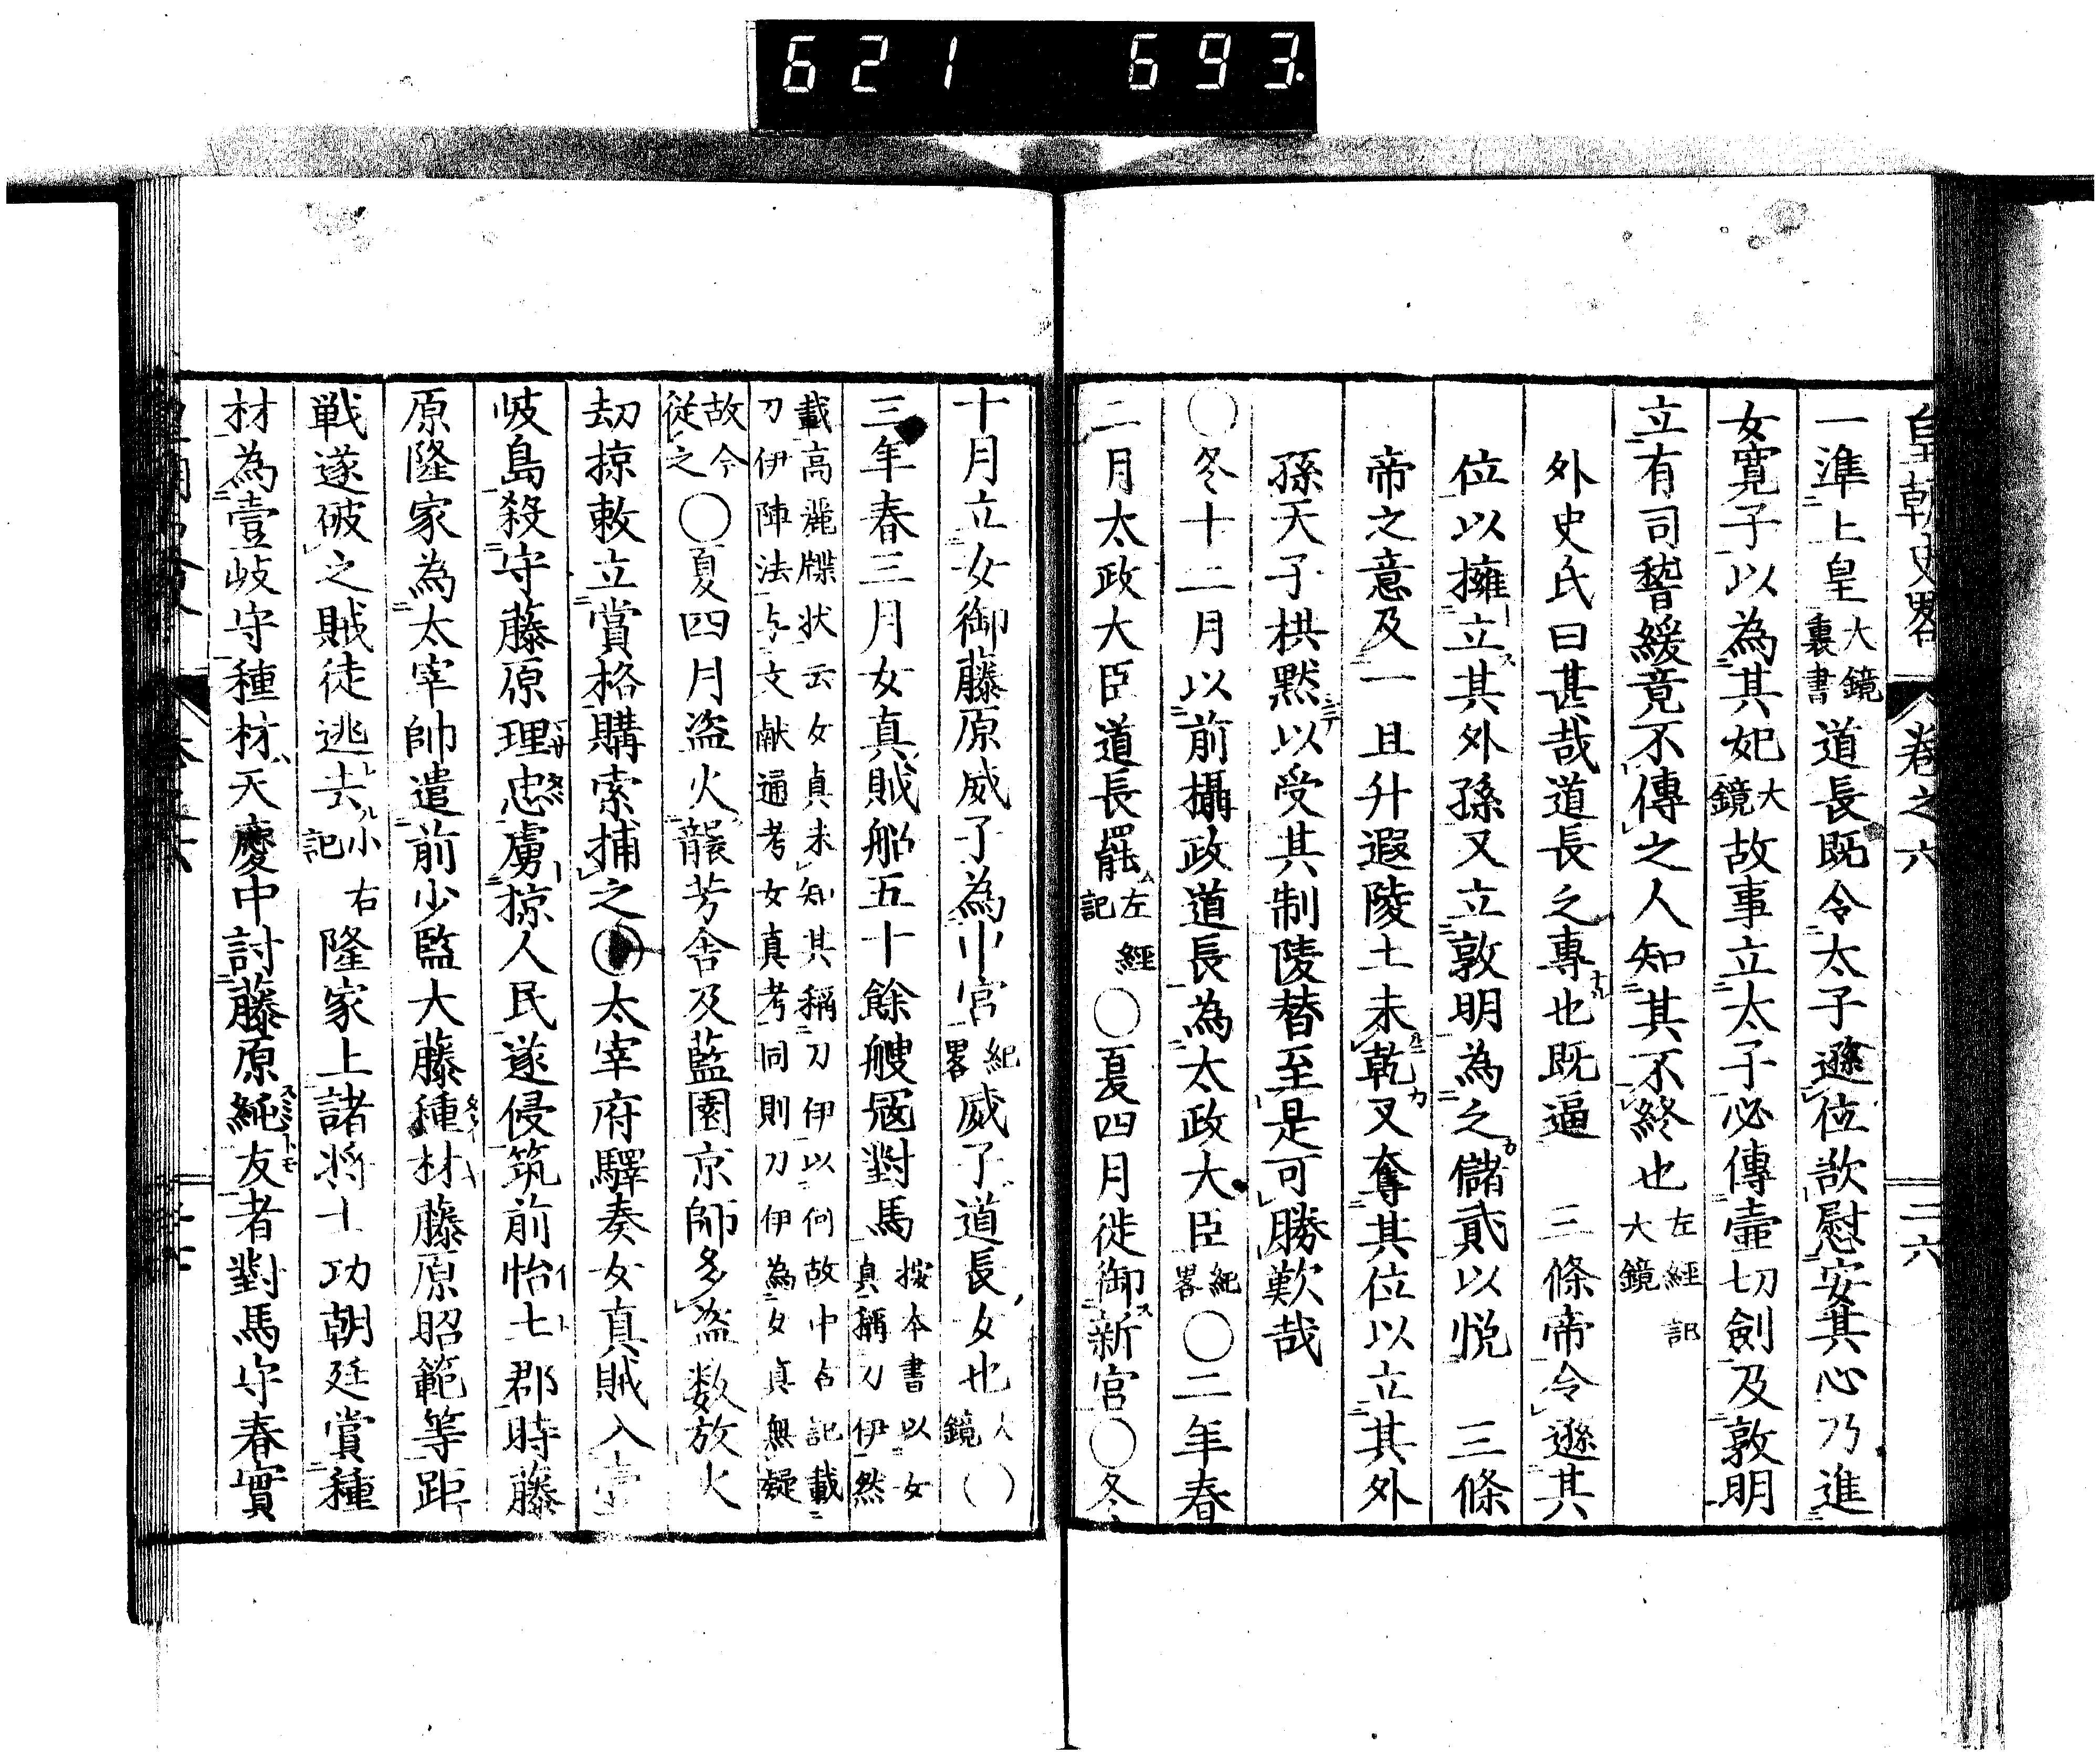 621 693
皇朝史畧 卷之六 三六
一準上皇大鏡裏書道長既令太子遜位欲慰安其心乃進
女寛子以為其妃大鏡故事立太子必傳壷切劍及敦明
立有司稽緩竟不傳之人知其不終也左經記大鏡
外史氏曰甚哉道長之專也既逼 三條帝令遜其
位以擁立其外孫又立敦明為之儲貳以悦 三條
帝之意及一旦升遐陵土未乾又奪其位以立其外
孫天子拱黙以受其制陵替至是可勝歎哉
○冬十二月以前攝政道長為太政大臣紀畧○二年春
二月太政大臣道長罷左經記○夏四月徙御新宮○冬
十月立女御藤原威子為中宮紀畧威子道長女也大鏡○
三年春三月女真賊船五十餘艘冦對馬按本書以女真稱刀伊然
載高麗牒状云女貞未知其稱刀伊以何故中右記載
刀伊陣法与文献通考女真考同則刀伊為女真無疑
故今従之○夏四月盗火襲芳舎及藍園京師多盗数放火
劫掠敕立賞格購索捕之○太宰府驛奏女真賊入壹
岐島殺守藤原理忠虜掠人民遂侵筑前怡土郡時藤
原隆家為太宰帥遣前少監大藤種材藤原昭範等距
戦遂破之賊徒逃去小右記隆家上諸将士功朝廷賞種
材為壹岐守種材天慶中討藤原純友者對馬守春實